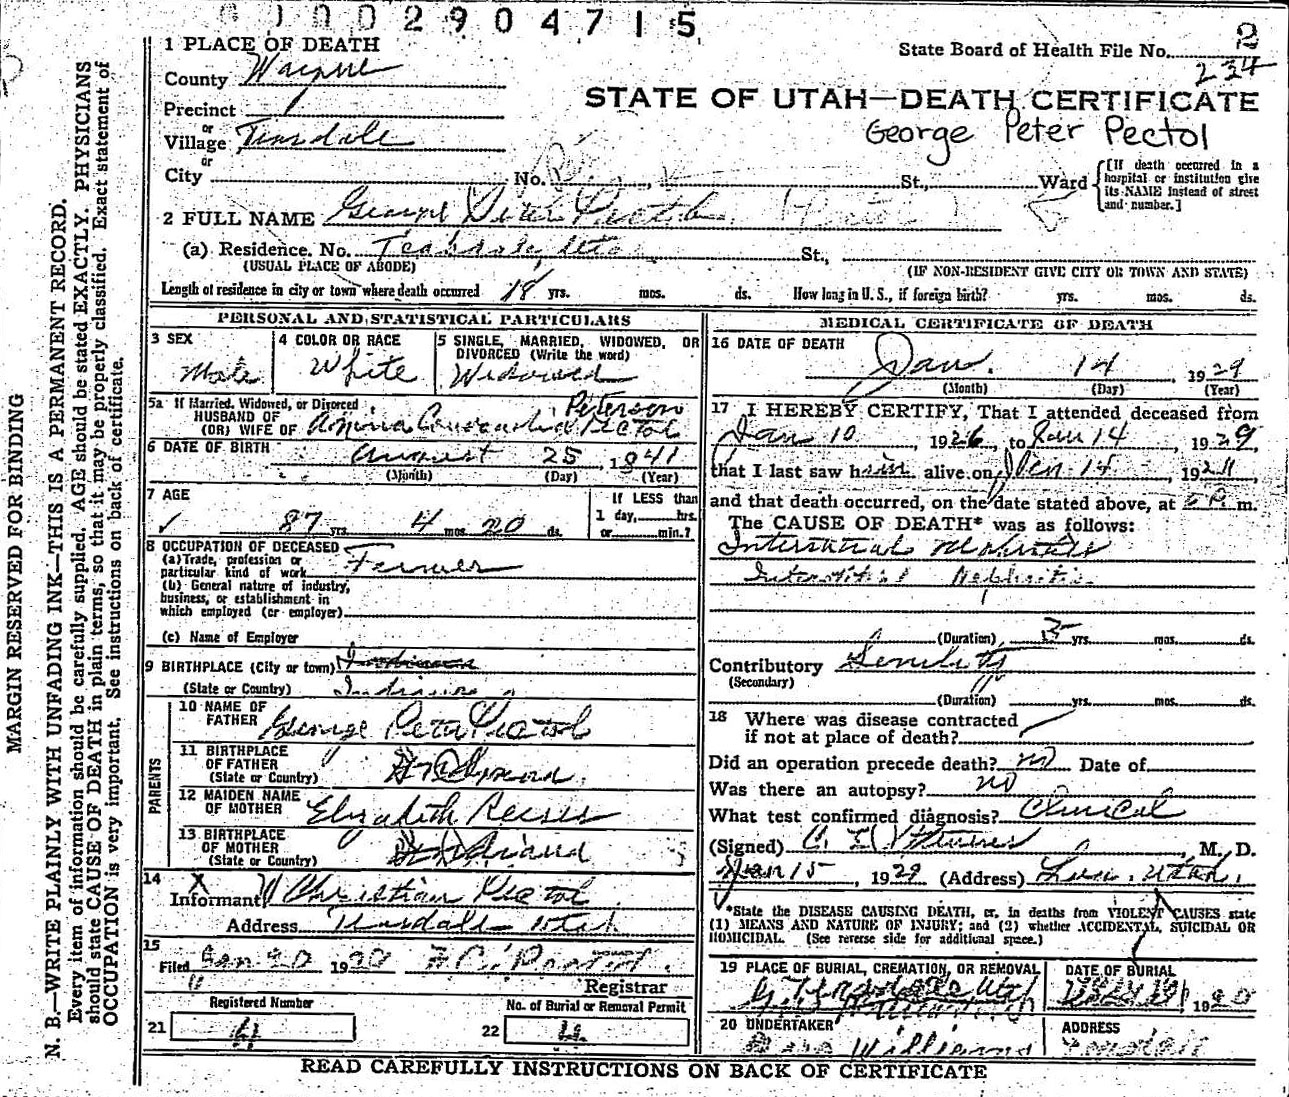 01002904715
1 PLACE OF DEATH
State Board of Health File No. 2
234
County Wayne
STATE OF UTAH—DEATH CERTIFICATE
Precinct
George Peter Pectol
or
Village
or
City No. St., Ward
[If death occurred in a hospital or institution give its NAME instead of street and number.]
2 FULL NAME George Peter Pectol
(a) Residence. No. St.,
(USUAL PLACE OF ABODE) (IF NON-RESIDENT GIVE CITY OR TOWN AND STATE)
Length of residence in city or town where death occurred 18 yrs. mos. ds. How long in U. S., if foreign birth? yrs. mos. ds.
PERSONAL AND STATISTICAL PARTICULARS
3 SEX
Male
4 COLOR OR RACE
White
5 SINGLE, MARRIED, WIDOWED, OR DIVORCED (Write the word)
Widowed
5a If Married, Widowed, or Divorced
HUSBAND OF
(OR) WIFE OF Peterson Pectol
6 DATE OF BIRTH August 25 1841
(Month) (Day) (Year)
7 AGE
87 yrs. 4 mos. 20 ds.
If LESS than
1 day, hrs.
or min.?
8 OCCUPATION OF DECEASED
(a) Trade, profession or
particular kind of work Farmer
(b) General nature of industry,
business, or establishment in
which employed (or employer)
(c) Name of Employer
9 BIRTHPLACE (City or town)
(State or Country) Indiana
PARENTS
10 NAME OF
FATHER George Peter Pectol
11 BIRTHPLACE
OF FATHER
(State or Country)
12 MAIDEN NAME
OF MOTHER Elizabeth
13 BIRTHPLACE
OF MOTHER
(State or Country)
14 X
Informant Christian Pectol
Address Utah
15
Filed Jan 20 1929
Registrar
Registered Number
21
No. of Burial or Removal Permit
22
MEDICAL CERTIFICATE OF DEATH
16 DATE OF DEATH
Jan. 14, 1929
(Month) (Day) (Year)
17 I HEREBY CERTIFY, That I attended deceased from
Jan 10, 1926, to Jan 14, 1929,
that I last saw him alive on Jan 14, 192
and that death occurred, on the date stated above, at m.
The CAUSE OF DEATH* was as follows:
Nephritis
Interstitial Nephritis
(Duration) yrs. mos. ds.
Contributory Senility
(Secondary)
(Duration) yrs. mos. ds.
18 Where was disease contracted
if not at place of death?
Did an operation precede death? no Date of
Was there an autopsy? no
What test confirmed diagnosis? Clinical
(Signed) , M. D.
Jan 15, 1929 (Address) Utah.
*State the DISEASE CAUSING DEATH, or, in deaths from VIOLENT CAUSES state
(1) MEANS AND NATURE OF INJURY; and (2) whether ACCIDENTAL, SUICIDAL OR
HOMICIDAL. (See reverse side for additional space.)
19 PLACE OF BURIAL, CREMATION, OR REMOVAL
DATE OF BURIAL
19
20 UNDERTAKER
Williams
ADDRESS
READ CAREFULLY INSTRUCTIONS ON BACK OF CERTIFICATE
MARGIN RESERVED FOR BINDING
N. B.—WRITE PLAINLY WITH UNFADING INK—THIS IS A PERMANENT RECORD.
Every item of information should be carefully supplied. AGE should be stated EXACTLY. PHYSICIANS
should state CAUSE OF DEATH in plain terms, so that it may be properly classified. Exact statement of
OCCUPATION is very important. See instructions on back of certificate.